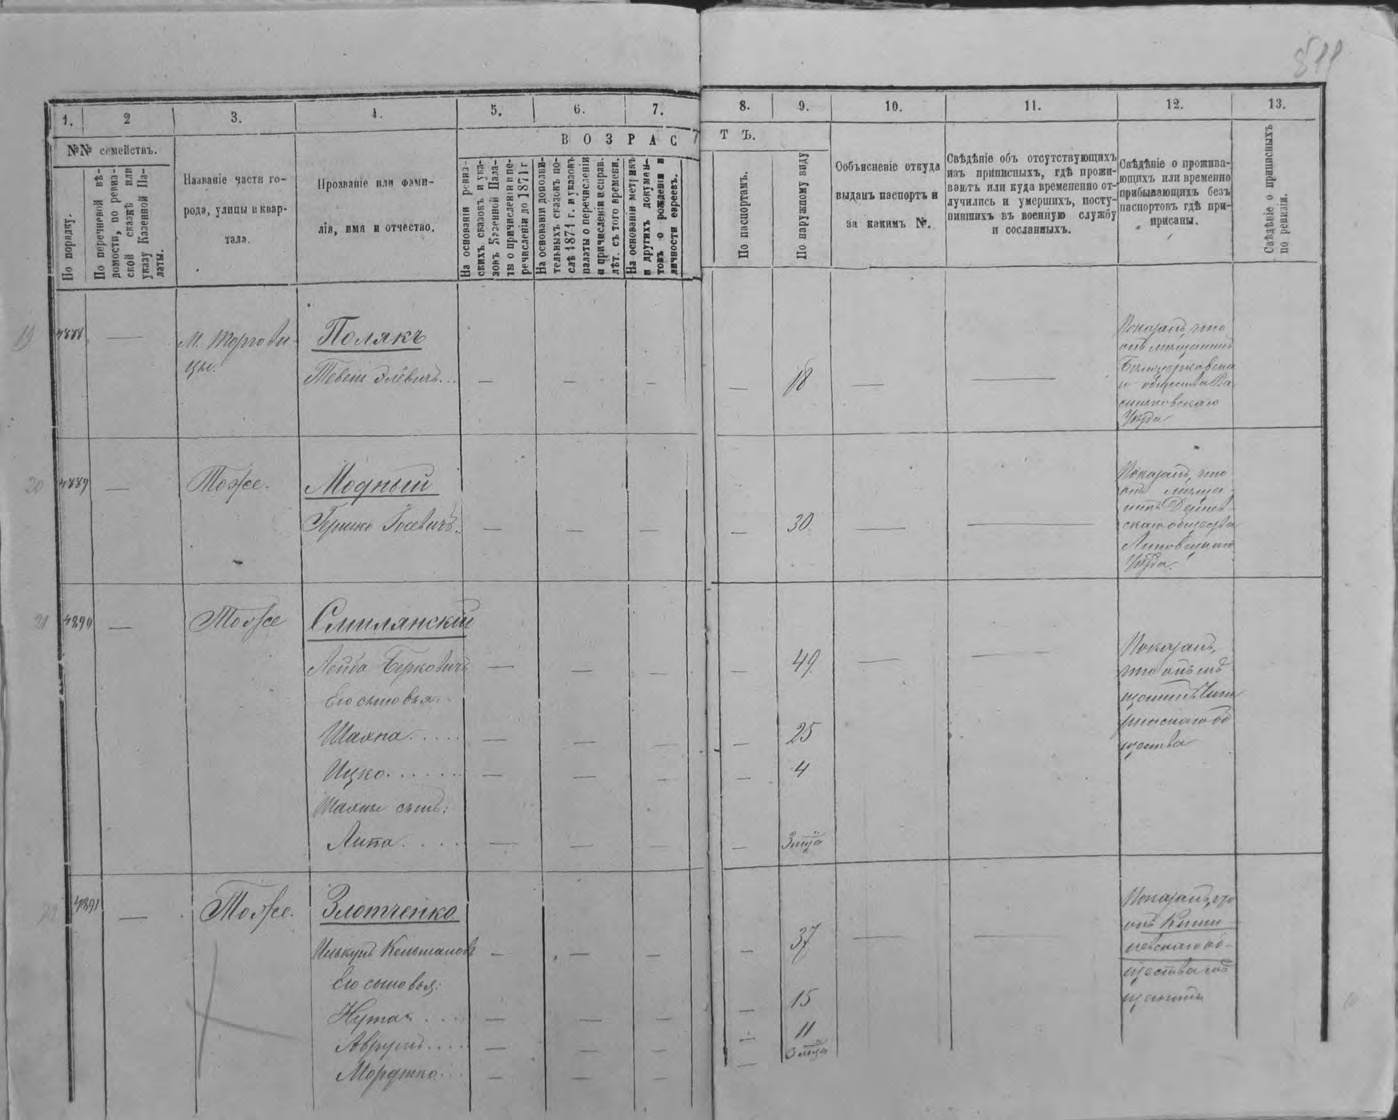 811
1. 2 3. 4. 5. 6. 7. 8. 9. 10. 11. 12. 13.
№№ семействъ.
По порядку.
По перечневой вѣ-
домости, по ревиз-
ской сказкѣ или
указу Казенной Па-
латы.
Названіе части го-
рода, улицы и квар-
тала.
Прозваніе или фами-
лія, имя и отчество.
ВОЗРАСТЪ.
На основаніи ревиз-
скихъ сказокъ и ука-
зовъ Казенной Пала-
ты о причисленіи и пе-
речисленіи до 1871 г
На основаніи дополни-
тельныхъ сказокъ по-
слѣ 1871 г. и указовъ
палаты о перечисленіи
и причисленіи и справ.
лѣт. съ того времени.
На основаніи метрикъ
и другихъ докумен-
товъ о рожденіи и
личности евреевъ.
По паспортамъ.
По наружному виду
Объясненіе откуда
выданъ паспортъ и
за какимъ №.
Свѣдѣніе объ отсутствующихъ
изъ приписныхъ, гдѣ прожи-
ваютъ или куда временно от-
лучились и умершихъ, посту-
пившихъ въ военную службу
и сосланныхъ.
Свѣдѣніе о прожива-
ющихъ или временно
прибывающихъ безъ
паспортовъ гдѣ при-
писаны.
Свѣдѣніе о приписныхъ
по ревизіи.
19 4888 — М. Торгови-
цы.
Полякъ
Тевель Элевичъ... — — — — 18 — —
Показалъ, что
онъ мѣщанинъ
Бѣлоцерковска-
го общества Ва-
сильковскаго
Уѣзда
20 4889 — Тоже.
Модный
Гершко Іосевичъ. — — — — 30 — —
Показалъ, что
онъ мѣща-
нинъ
скаго общества
Липовецкаго
Уѣзда.
21 4890 — Тоже
Смилянскій
Лейба Берковичъ — — — 49 — —
Его сыновья..
Шахна..... — — — — 25
Ицко...... — — — — 4
Шахны сынъ:
Липа..... — — — — 3 мѣц
Показалъ,
что онъ мѣ
щанинъ Чиги
ринскаго об
щества
22 4891 — Тоже.
Злотченко
Кельмановъ — — — — 37 — —
Его сыновья:
Нута.... — — — — 15
Аврумъ.... — — — — 11
Мордко... — — — —
Показалъ, что
онъ Киши-
невскаго об-
щества мѣ
щанинъ